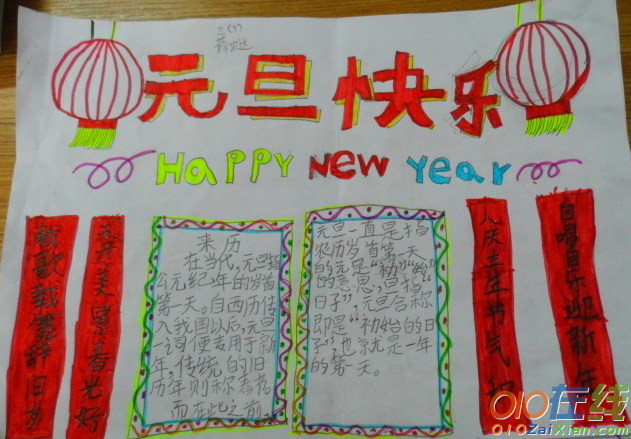 三(7)
元旦快乐
Happy New Year
新歌载舞辞旧岁
来历
在当代,元旦指
公元纪年的岁首
第一天。自西历传
入我国以后,元旦
一词便专用于新
年,传统的旧
历年则称春节。
而在此之前,
元旦一直是指
农历岁首第一天
的元是“初”“始”
的意思,旦指“
日子”,元旦合称
即是“初始的日
子”,也就是一年
的第一天。
自唱自乐迎新年
010在线
010ZaiXian.com